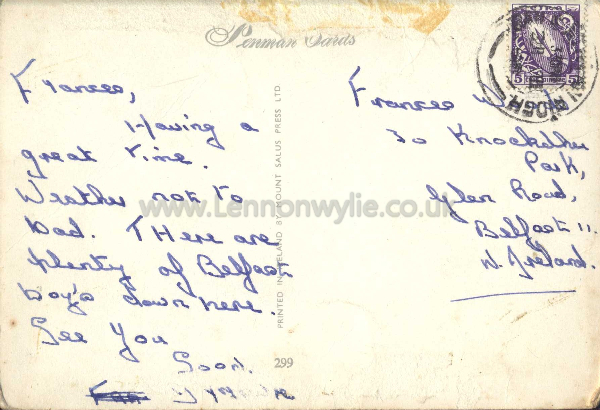 Penman Cards
Frances,
Having a
great time.
Weather not to
bad. THere are
plenty of Belfast
boy's down here.
See You
Soon.
Frances
30
Park,
Glen Road,
Belfast 11.
N. Ireland.
PRINTED IN IRELAND BY MOUNT SALUS PRESS LTD
299
www.Lennonwylie.co.uk
5
5